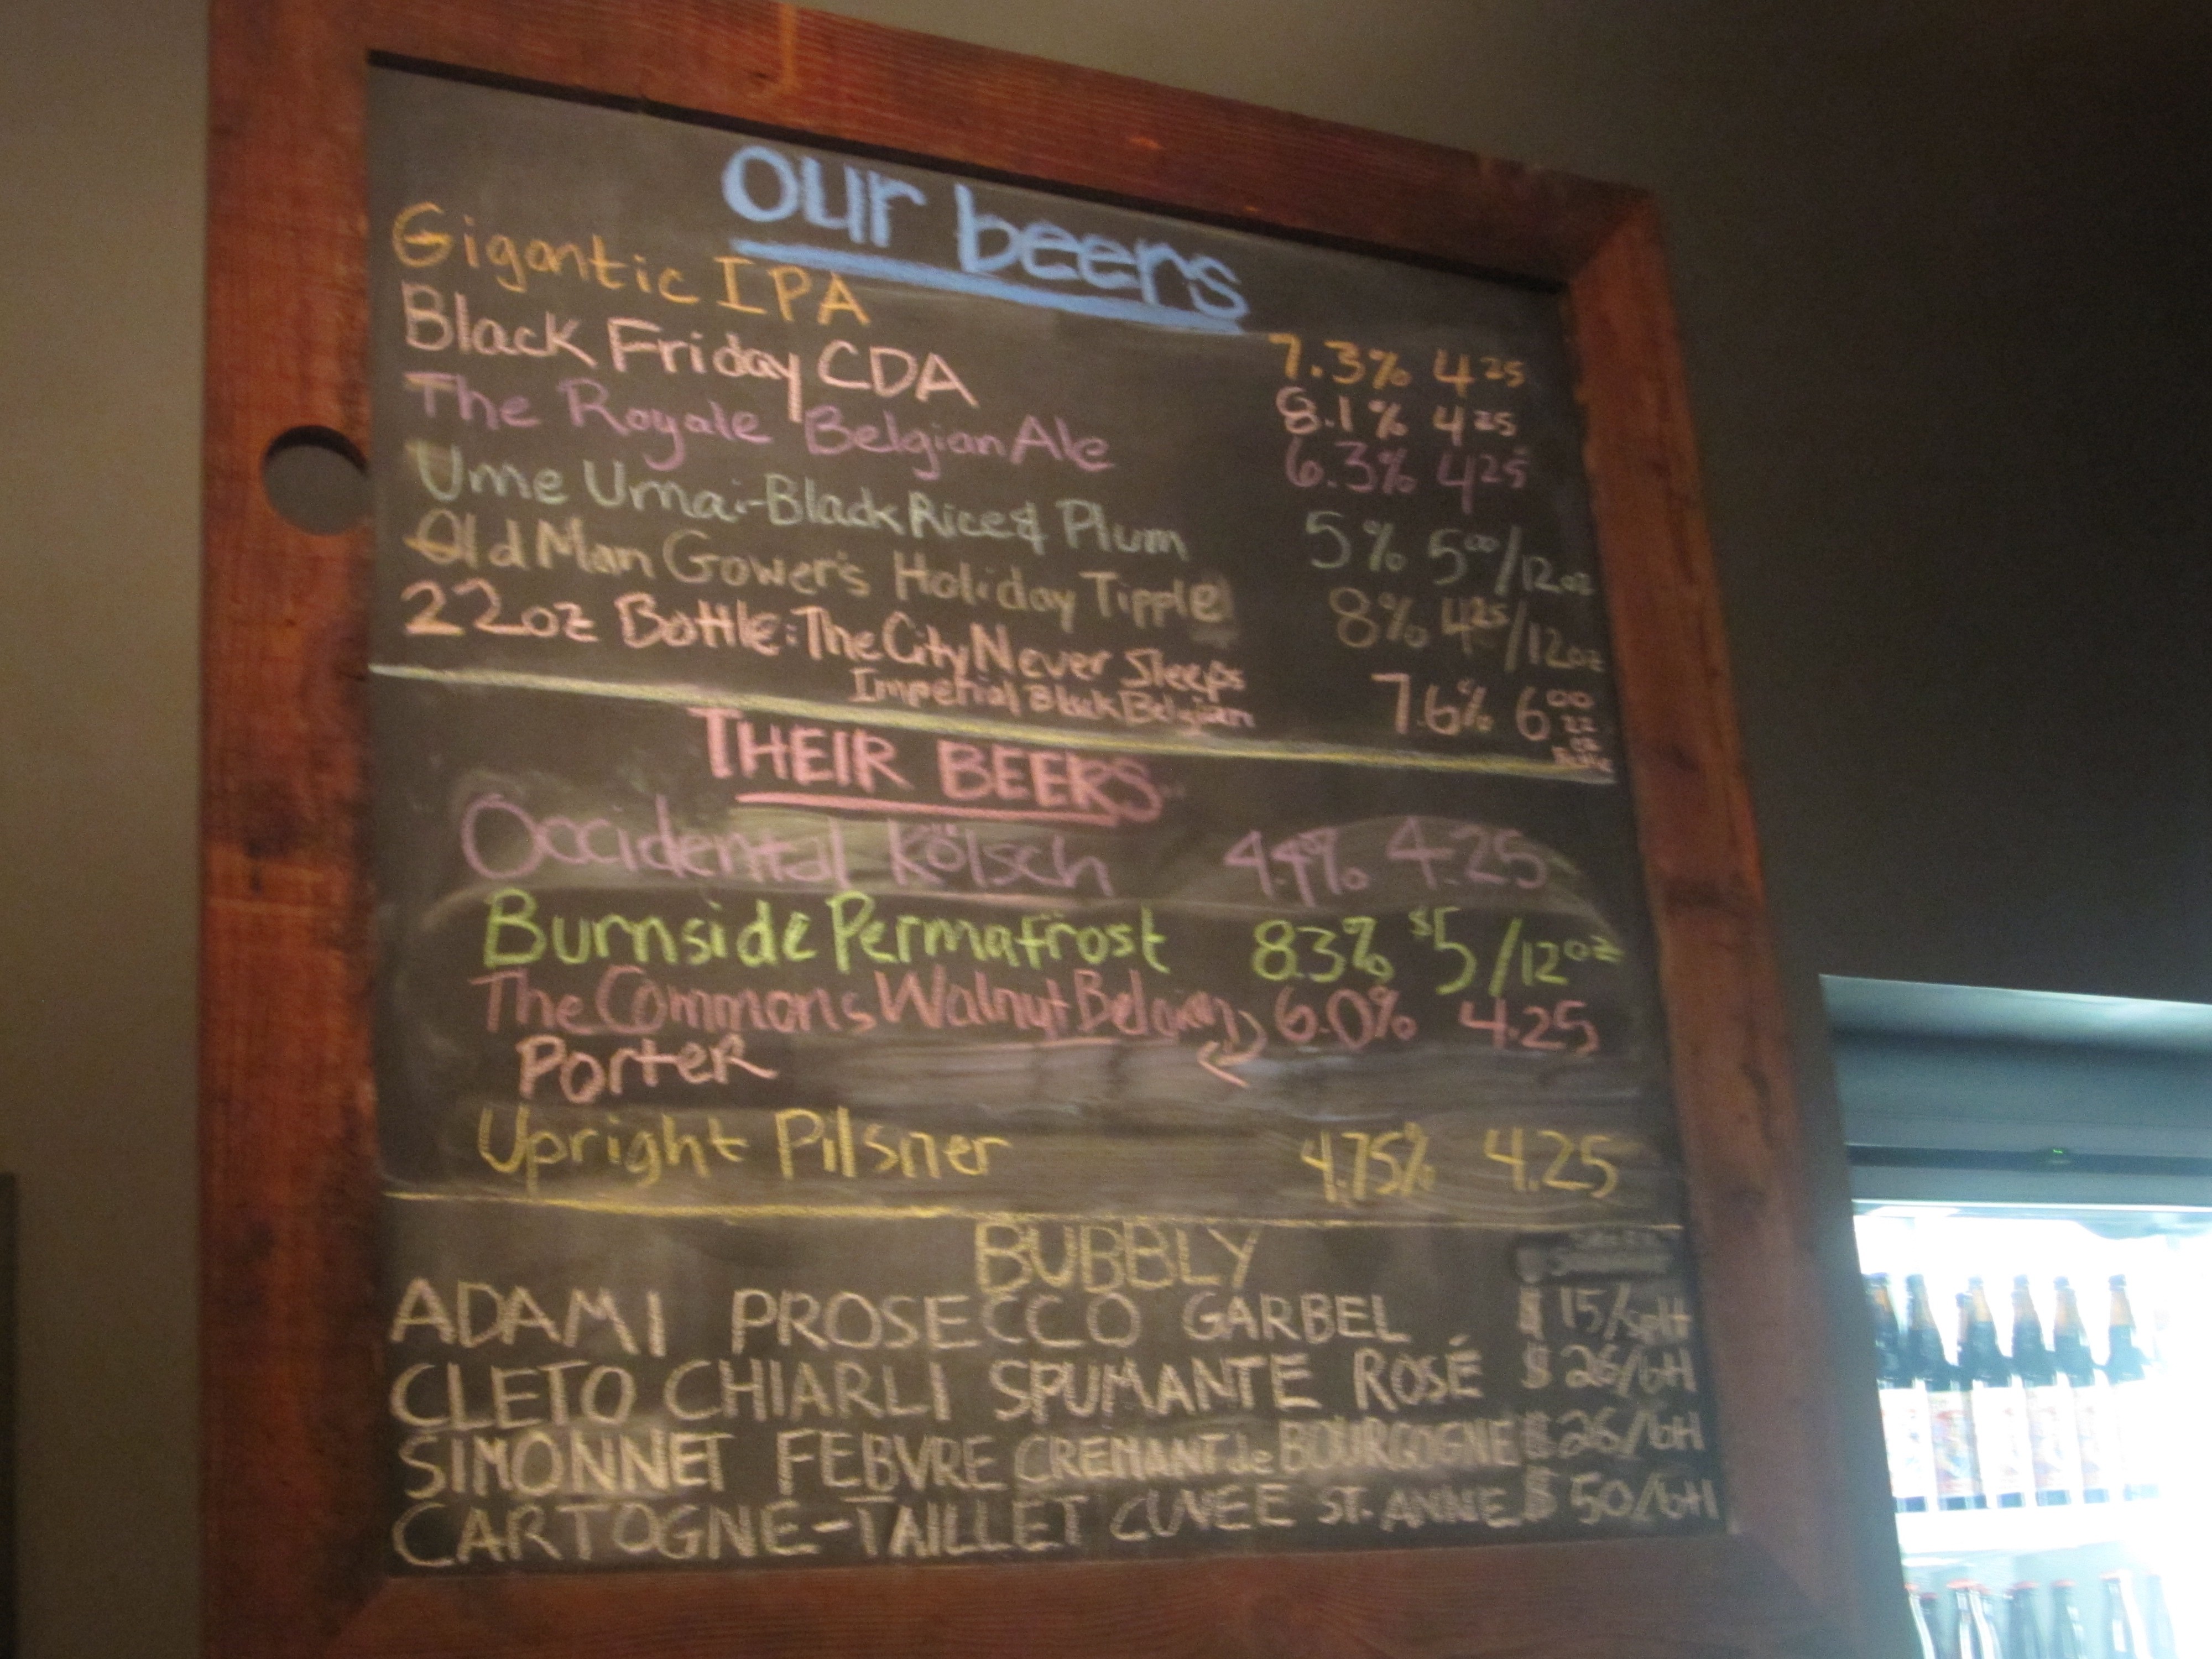 our beers
Gigantic IPA 7.3% 4 25
Black Friday CDA 8.1% 4 25
The Royale Belgian Ale 6.3% 4 25
Ume Umai-Black Rice & Plum 5% 5 00/12oz
Old Man Gower's Holiday Tipple 8% 4 25/12oz
22oz Bottle: The City Never Sleeps
Imperial Black Belgian 7.6% 6 00 22
THEIR BEERS
Occidental Kölsch 4.4% 4.25
Burnside Permafrost 8.3% $5/12oz
The Commons Walnut Belgian 6.0% 4.25
PORTER
Upright Pilsner 4.75% 4.25
BUBBLY
ADAMI PROSECCO GARBEL $ 15/split
CLETO CHIARLI SPUMANTE ROSÉ $ 26/btl
SIMONNET FEBVRE CREMANT de BOURGOGNE $ 26/btl
CARTOGNE-TAILLET CUVEE ST. ANNE $ 50/btl